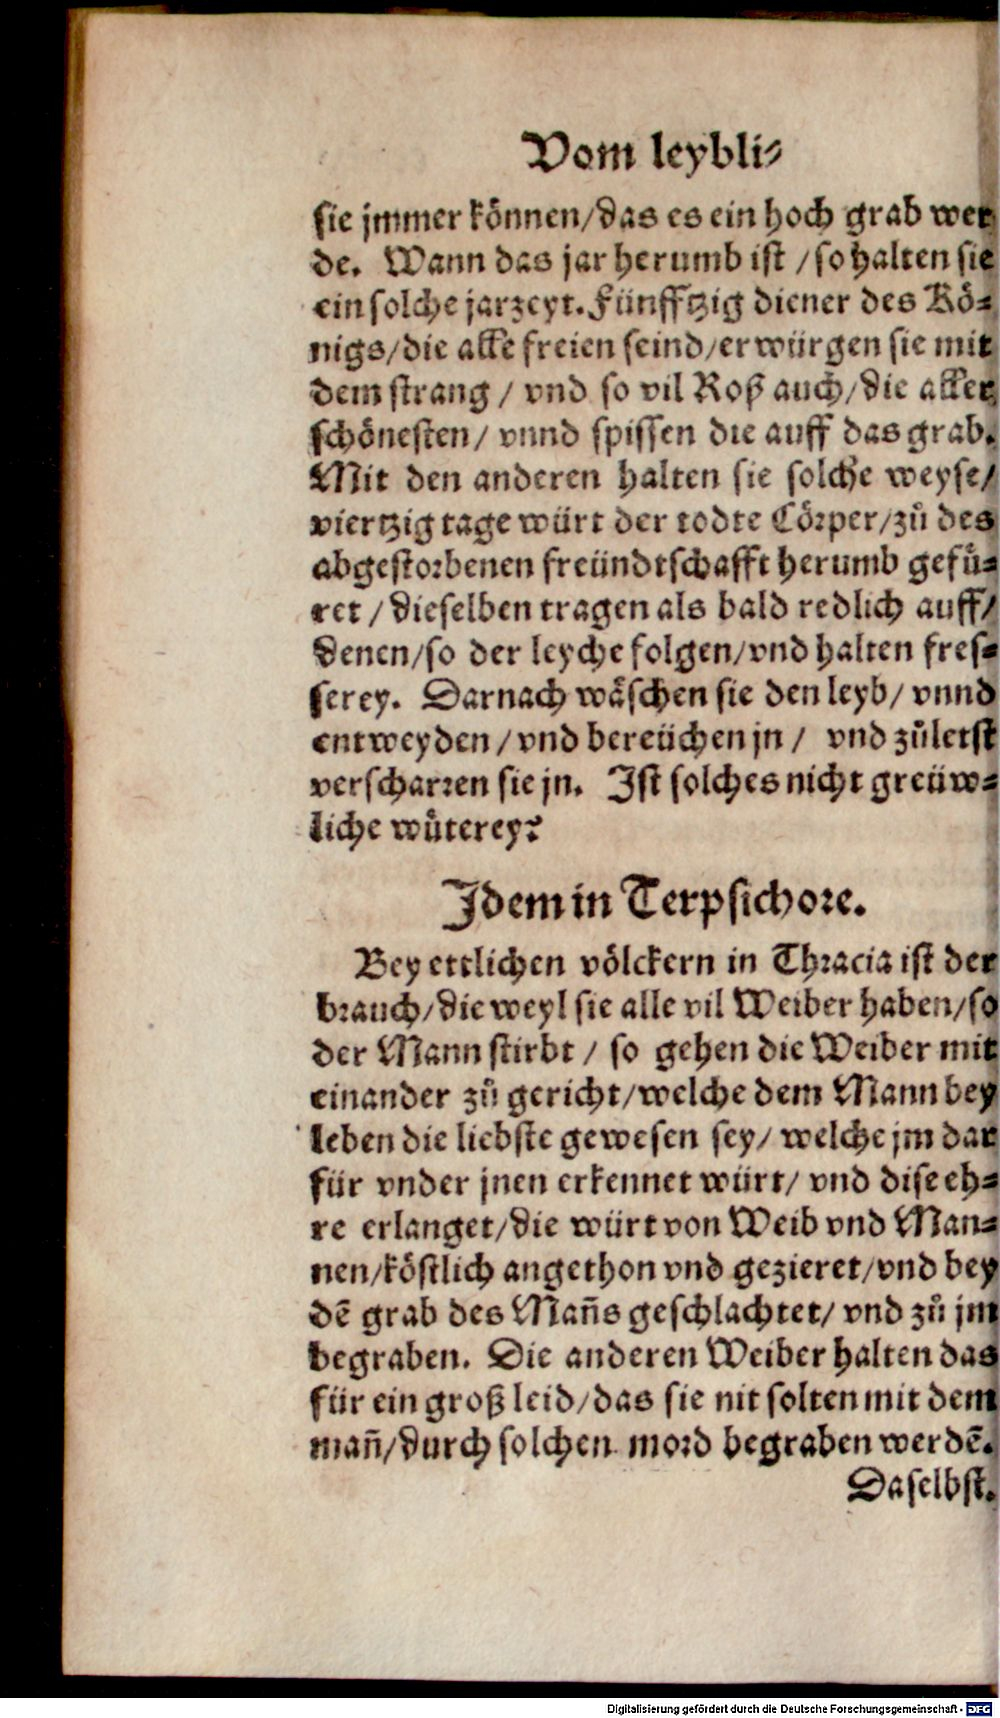 Vom leybli⸗
sie jmmer können/das es ein hoch grab wer
de. Wann das jar herumb ist /so halten sie
ein solche jarzeyt. Fünfftzig diener des Kö⸗
nigs/die alle freien seind/erwürgen sie mit
dem strang / vnd so vil Roß auch/die aller
schönesten/ vnnd spissen die auff das grab.
Mit den anderen halten sie solche weyse/
viertzig tage würt der todte Cörper/zů des
abgestorbenen freündtschafft herumb gefů⸗
ret /dieselben tragen als bald redlich auff/
denen/so der leyche folgen/vnd halten fres⸗
serey. Darnach wäschen sie den leyb/ vnnd
entweyden /vnd bereüchen jn / vnd zůletst
verscharren sie jn. Ist solches nicht greüw⸗
liche wůterey?
Idem in Terpsichore.
Bey ettlichen völckern in Thracia ist der
brauch/die weyl sie alle vil Weiber haben/so
der Mann stirbt / so gehen die Weiber mit
einander zů gericht/welche dem Mann bey
leben die liebste gewesen sey/ welche jm dar
für vnder jnen erkennet würt/ vnd dise eh⸗
re erlanget/die würt von Weib vnd Man⸗
nen/köstlich angethon vnd gezieret/vnd bey
dē grab des Mañs geschlachtet/ vnd zů jm
begraben. Die anderen Weiber halten das
für ein groß leid/das sie nit solten mit dem
mañ/durch solchen mord begraben werdē.
Daselbst.
Digitalisierung gefördert durch die Deutsche Forschungsgemeinschaft - DFG